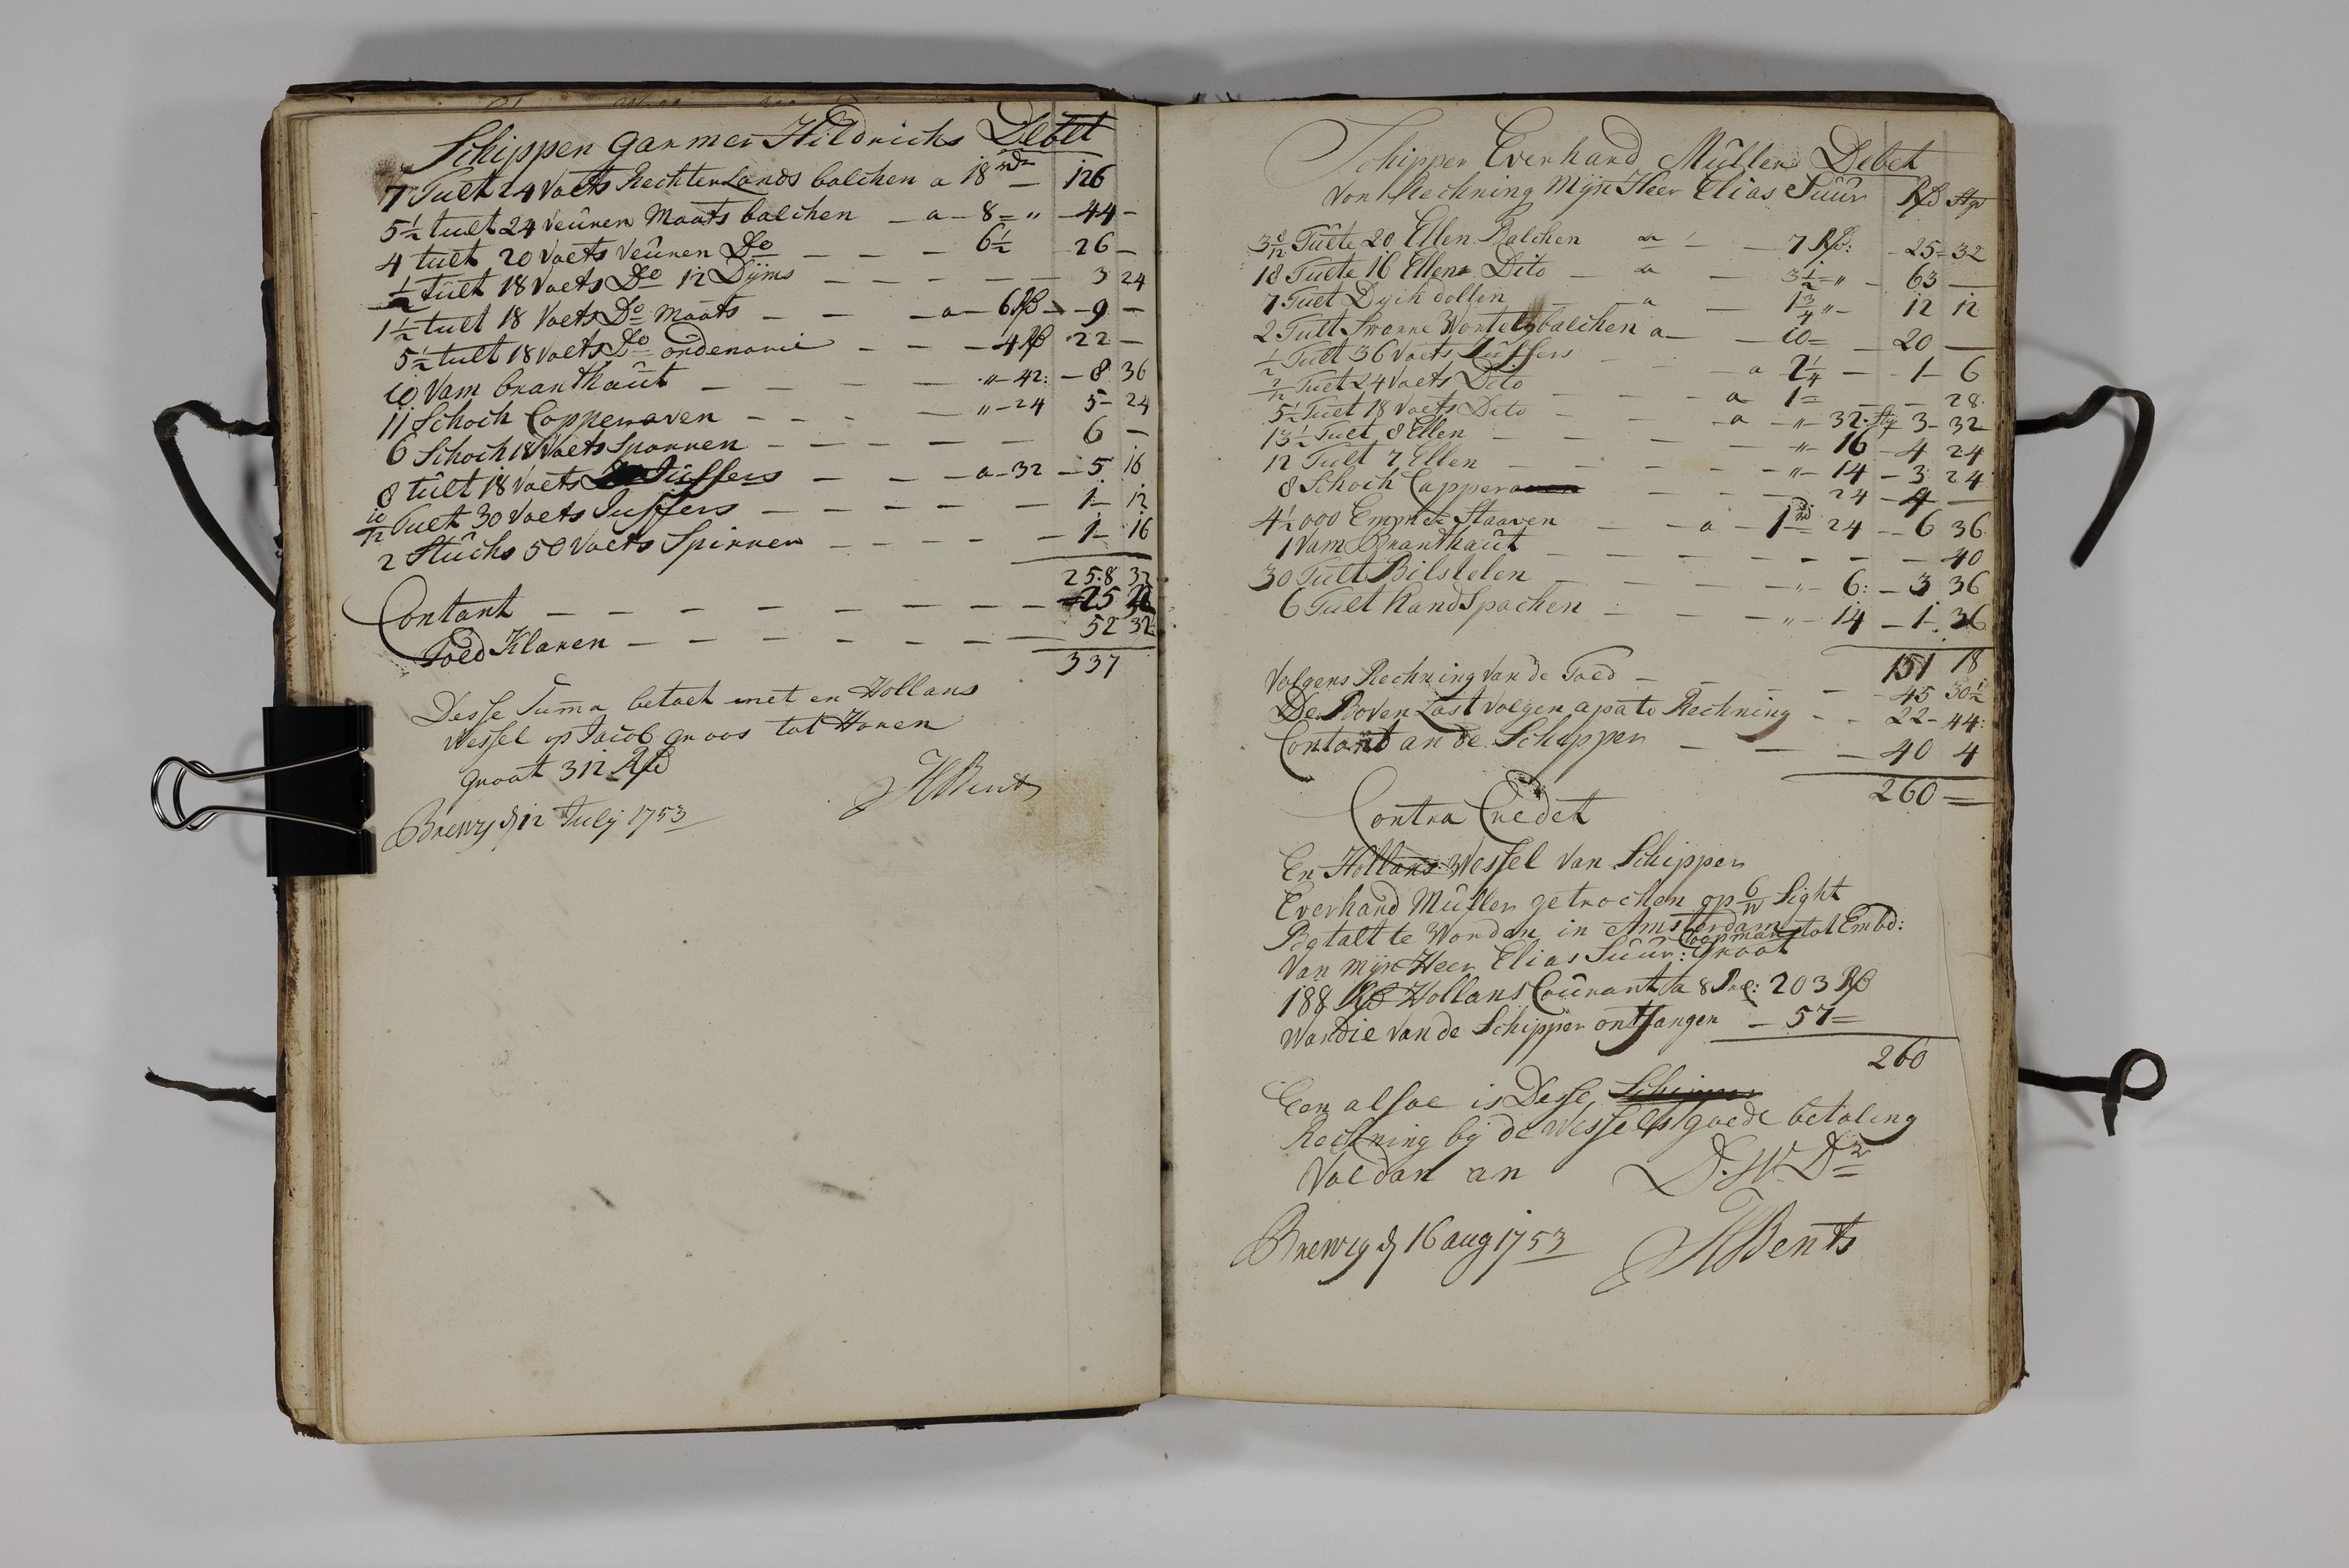 Schipper Garmer Hildrichs Debet
7 Tult 24 Voets Rechterlands balchen a 18 rdr — 126
5½ tult 24 Veûren Maats balchen — a — 8 = " — 44 —
4 tult 20 Voets Veûren Do — — — 6½ 26 —
½ Tult 18 Voets Do 12 Dÿms — — — — — 3 24
1½ tult 18 Voets Do Maats — — — a — 6 Rß — 9 —
5½ tult 18 Voets Do ordenarie — — — 4 Rß 22 —
10 Vam branthaût — — — — " — 42: — 8 36
11 Schoch Copperaven — — — — " — 24 5 — 24
6 Schoch 18 Voets Sparren — — — — — — 6 —
8 tult 18 Voets Jûffers — — — a — 32 — 5 16
10/12 Tult 30 Voets Juffers — — — — — — 1 — 12
2 Stûchs 50 Voets Spirren — — — — — 1 — 16
258 32
Contant — — — — — — — — 25
Toed Klaren — — — — — — — 52 32
337
Desse Suma betaelt met en Hollans
Wessel op Jacob groos tot Horen
groat 312 Rd
HBents
Brewg d 12 Julij 1753
Schipper Everhard Mûller Debet
Von Rechning Mijn Heer Elias Suûr Rd Str
3 8/12 Tûlte 20 Ellen Balchen a — 7 Rß: — 25 = 32
18 Tulte 16 Ellen Dito — a — 3½ = " — 63 —
7 Tult Dyckdollen — a — 1¾ " — 12 12
2 Tult Svarre Wortelbalchen a — — 10 = — 20 —
½ Tult 36 Voets Jûffers — — a 2¼ — — 1 — 6
7/12 Tult 24 Voets Dito — — a 1 = — — 28
5½ Tult 18 Voets Dito — — a — " — 32 Str 3 — 32
13½ Tult 8 Ellen — — — — " — 16 — 4 24
12 Tult 7 Ellen — — — — " — 14 — 3 24
8 Schoch Capper — — — — 24 — 4 —
4½000 Staaven — — a — 1 rd 24 — 6 36
1 Vam Branthaût — — — — — — — 40
30 Tult Bilstelen — — — — " 6: — 3 36
6 Tult handspachen — — — " — 14 — 1 — 36
151 18
Volgens Rechning Van de Toed — — — — 45 30½
De Boven Last Volgen apato Rechning — — 22 — 44:
Contant an de Schipper — — — 40 4
260 =
Contra Credet
En Hollans Wessel Van Schipper
Everhard Mûller getrochen op 6/W Sight
Betalt te Worden in Amsterdam
Van mijn Heer Elias Suûr: Coopman tot Embd: Groat
188 Rß Hollans Coûrant a 8 Prc: 203 Rß
Wardie Van de Schipper ontfangen — 57 =
260
Een alsoe is Desse Schipper
Rechning bij de Wessels goede betaling
Voldan an D. W. Dr
Brewig d 16 aug 1753 HBents